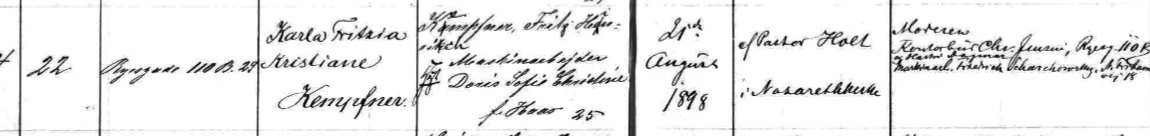 22
Ryesgade 110 B. 23
Karla Fritzia
Kristiane
Kempfner.
Kempfner, Fritz Hein-
rikch
Maskinarbejder
Doris Sofie Christine
f. Haas 25
21de
August
1898
af Pastor Holt
i Nazarethkirke
Moderen
Kontorbud Chr. Jensen, Ryesg. 110 B
Maskinarb. Friedrich Scharchowsky, N. Fridan
vej 18